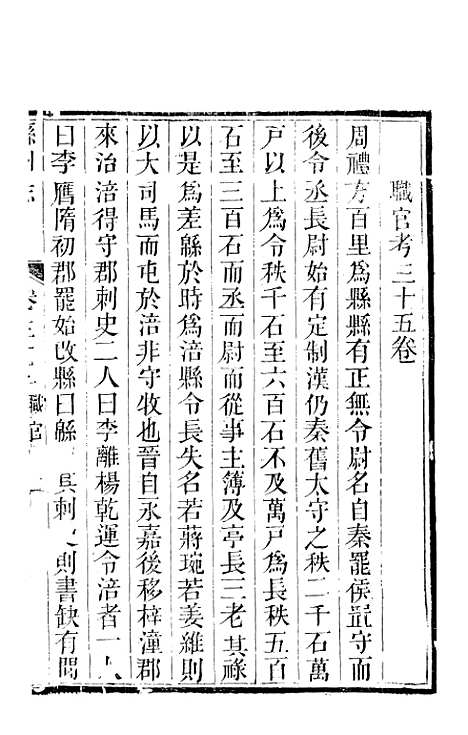 職官考三十五卷
周禮方百里爲縣縣有正無令尉名自秦罷侯置守而
後令丞長尉始有定制漢仍秦舊太守之秩二千石萬
戸以上爲令秩千石至六百石不及萬戸爲長秩五百
石至三百石而丞而尉而從事主簿及亭長三老其祿
以是爲差緜於時爲涪縣令長失名若蔣琬若姜維則
以大司馬而屯於涪非守牧也晉自永嘉後移梓潼郡
來治涪得守郡刺史二人曰李離楊乾運令涪者一人
曰李膺隋初郡罷始改縣曰緜 其刺 則書缺有間
緜州志 卷三十五 職官 一